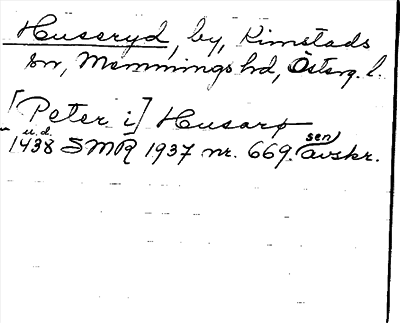 Husaryd, by, Kimstads
sn, Memmings hd, Österg. l.
[Peter i] Husarø
u. d.
1438 SMR 1937 nr. 669. sen avskr.